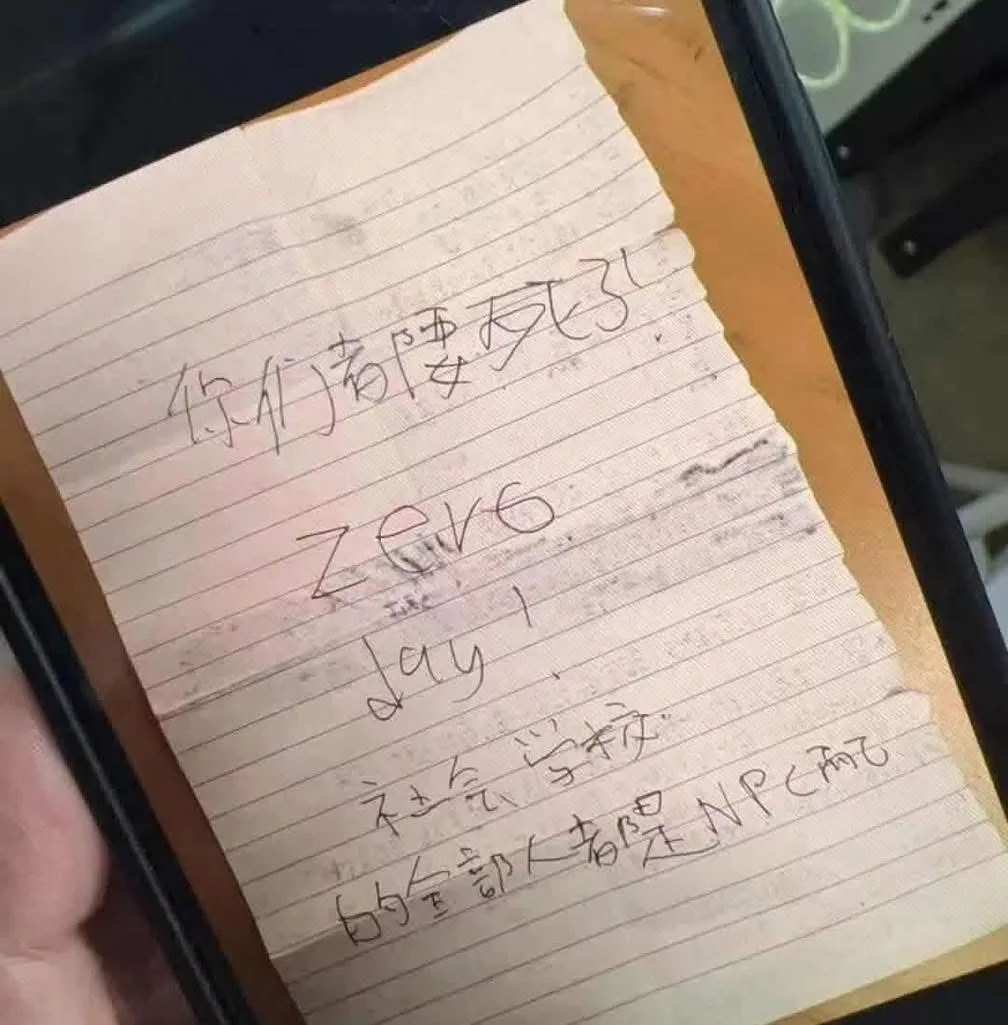 你们都要死了
zero
day
社会学校
的全部人都是NPC而已